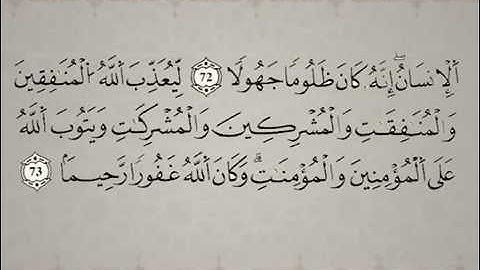 اَ۬لِانسَٰنُۖ إِنَّهُۥ كَانَ ظَلُوماٗ جَهُولاٗ 72 لِّيُعَذِّبَ اَ۬للَّهُ اُ۬لْمُنَٰفِقِينَ
وَالْمُنَٰفِقَٰتِ وَالْمُشْرِكِينَ وَالْمُشْرِكَٰتِ وَيَتُوبَ اَ۬للَّهُ
عَلَى اَ۬لْمُؤْمِنِينَ وَالْمُؤْمِنَٰتِۗ وَكَانَ اَ۬للَّهُ غَفُوراٗ رَّحِيماٗ 73